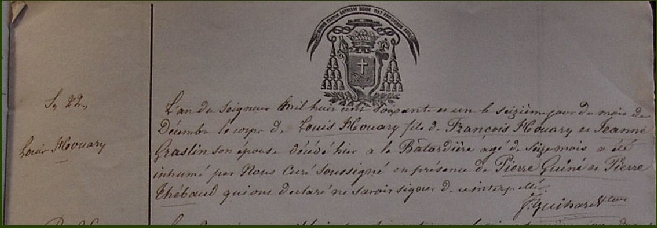 Sre 22
Louis Houary
L'an du Seigneur Mil huit cent soixante et un le seizième jour du mois de
Décembre le corps de Louis Houary fils de François Houary et Jeanne
Graslin son épouse décédé hier à la Batardière agé de seize mois a été
inhumé par Nous Curé soussigné en présence de Pierre Guiné et Pierre
Thébaud qui ont déclaré ne savoir signer de ce interpellés